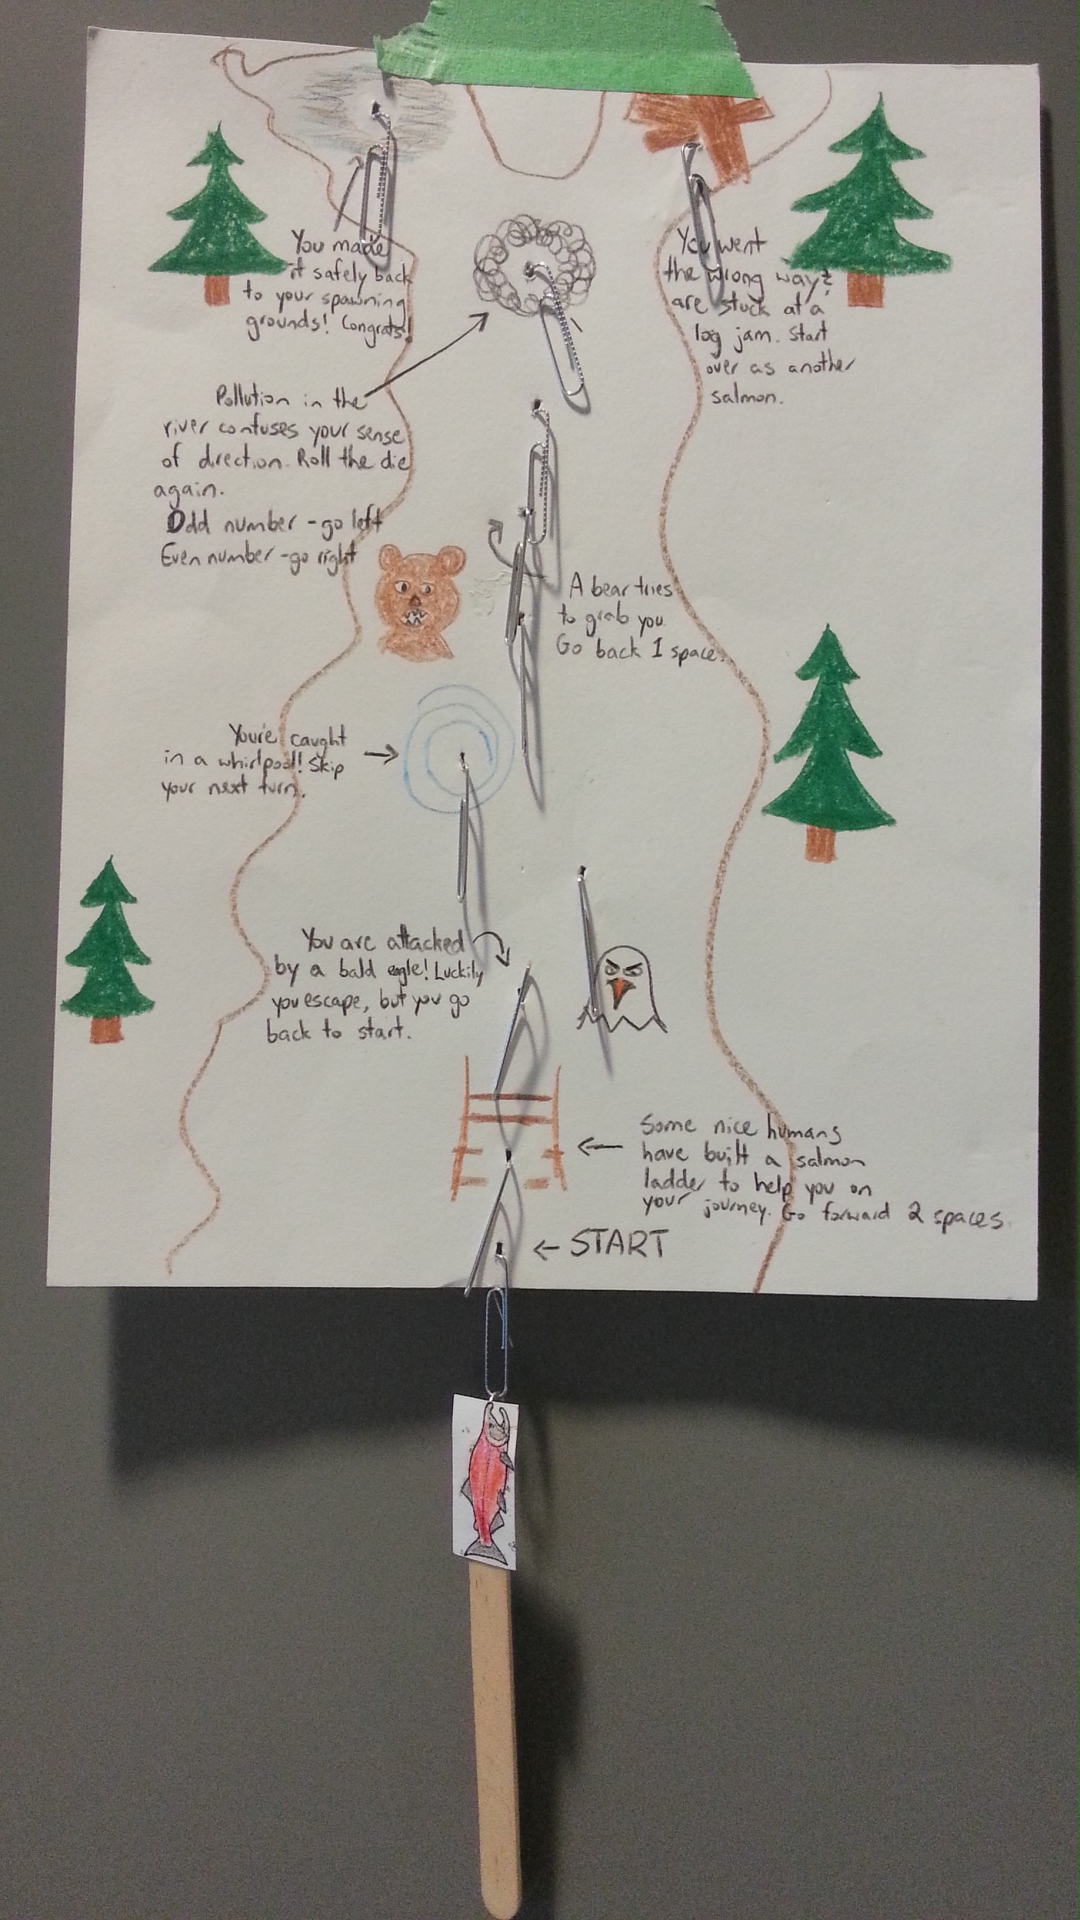 You made
it safely back
to your spawning
grounds! Congrats!
You went
the wrong way &
are stuck at a
log jam. Start
over as another
salmon.
Pollution in the
river confuses your sense
of direction. Roll the die
again.
Odd number - go left
Even number - go right
A bear tries
to grab you.
Go back 1 space.
You're caught
in a whirlpool! Skip
your next turn.
You are attacked
by a bald eagle! Luckily
you escape, but you go
back to start.
Some nice humans
have built a salmon
ladder to help you on
your journey. Go forward 2 spaces.
START